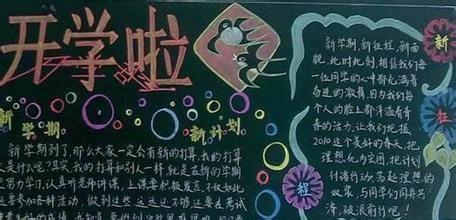 开学啦
新学期
新计划
新学期到了,那么大家一定会有新的打算,我的打算
是什么呢?其实,我的和别人一样,就是在新的学期
努力学习,认真听老师讲课,上课要积极发言,不仅如此
还要参加各种活动,做到这些,远远不够还要
新学期,新征程,新面
貌,此时此刻,相信我们每
一位同学的心中都充满着
奋进的激情,因为我们每
个人的脸上都洋溢着青
春的活力,让我们把握
2010这个美好的春天,把
理想化为宏图,把计划
付诸行动,高处理想的
风帆,与同学们同舟共
济,破浪前行吧!
新
征
程